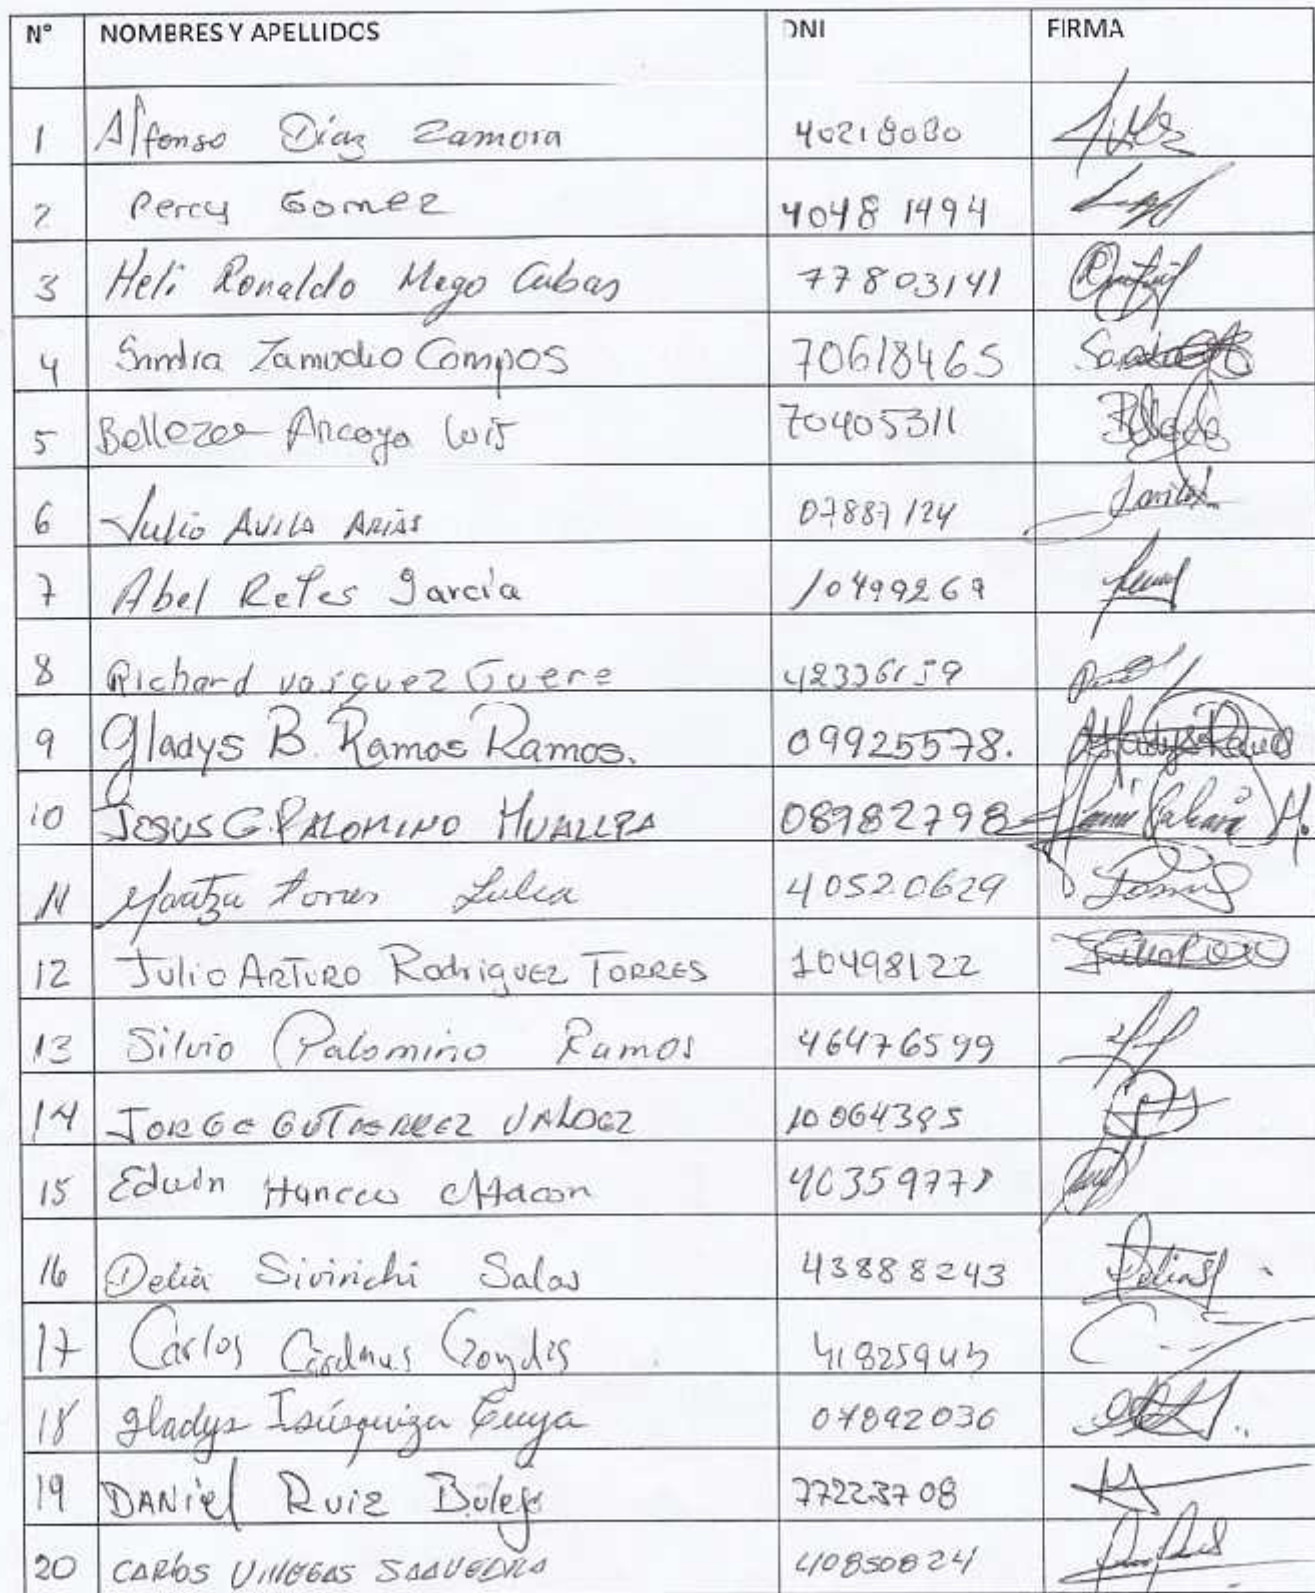 N° NOMBRES Y APELLIDOS DNI FIRMA
1 Alfonso Díaz Zamora 40218080
2 Percy Gomez 40481494
3 Heli Ronaldo Mego Cubas 77803141
4 Sandra Zamudio Campos 70618465
5 Bellezas Arcaya Luis 70405311
6 Julio AVILA ARIAS 07887124
7 Abel Retes García 10499269
8 Richard vasquez Guere 42336159
9 Gladys B. Ramos Ramos. 09925578.
10 JESUS G. PALOMINO HUALLPA 08982798
11 Torres 40520629
12 Julio ARTURO Rodriguez TORRES 10498122
13 Silvio Palomino Ramos 46476599
14 JORGE GUTIERREZ VALDEZ 10064395
15 Edwin Hancco chacon 40359778
16 Delia Sivirichi Salas 43888243
17 Carlos Cárdenas 41825945
18 Gladys Isúsquiza Cuya 07892036
19 DANiel Ruiz 77223708
20 CARLOS VILLEGAS SAAVEDRA 40850824